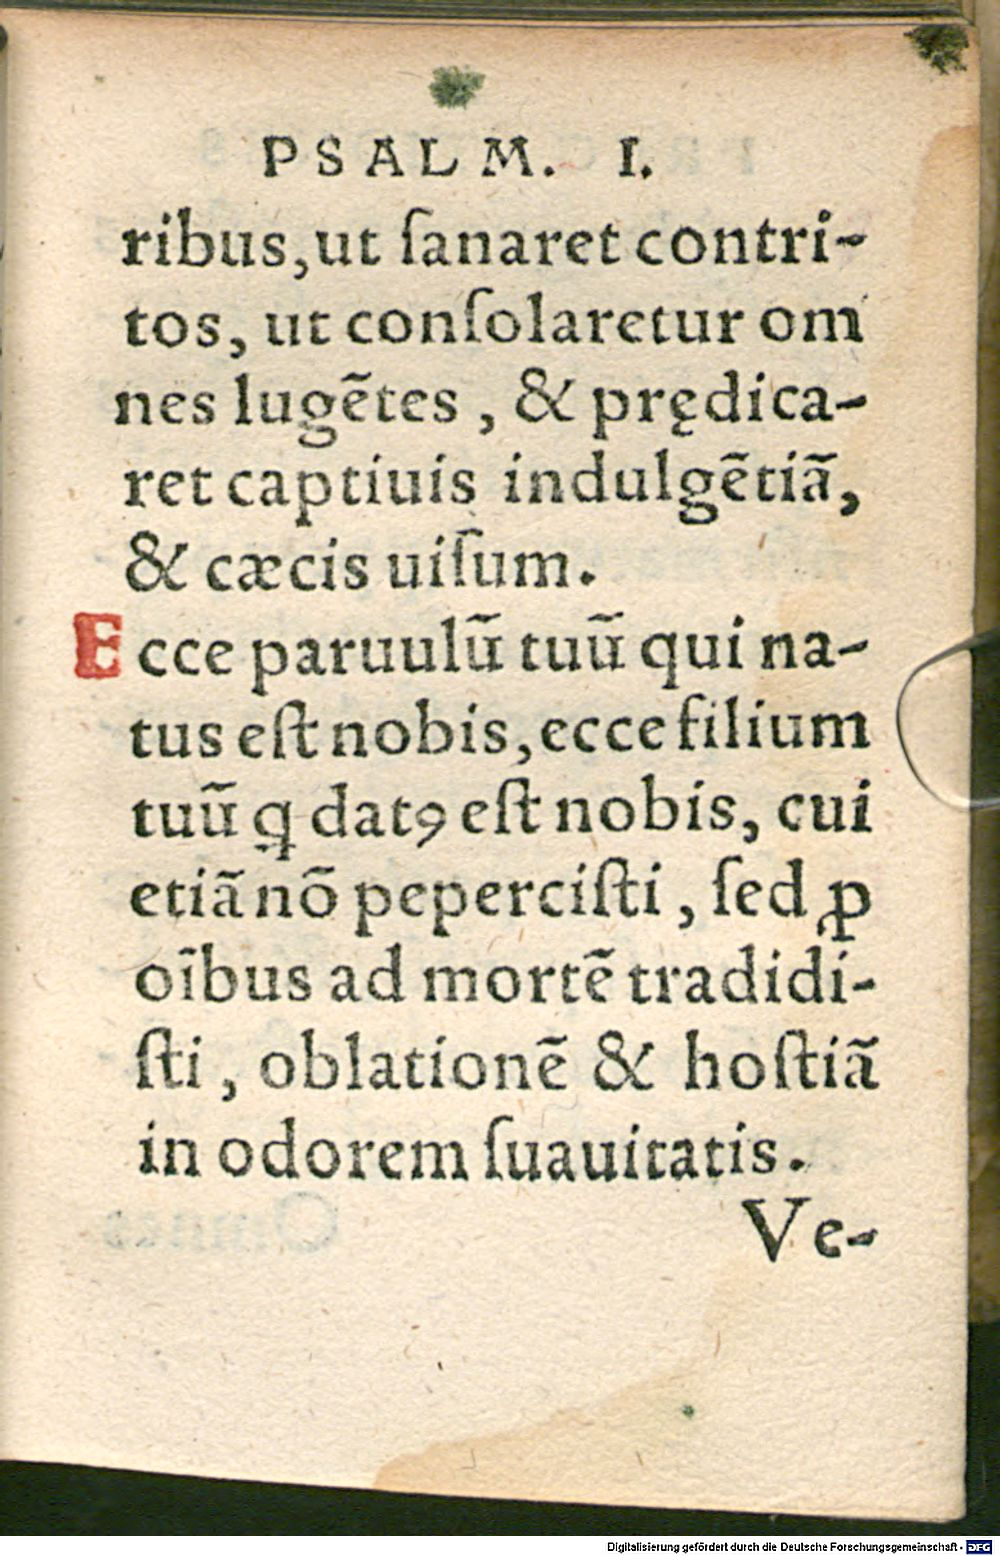 PSALM. I.
ribus, ut ſanaret contri-
tos, ut conſolaretur om
nes lugẽtes, & prędica-
ret captiuis indulgẽtiã,
& cæcis uiſum.
Ecce paruulũ tuũ qui na-
tus eſt nobis, ecce filium
tuũ ꝗ datꝰ eſt nobis, cui
etiã nõ peperciſti, ſed ꝓ
oĩbus ad mortẽ tradidi-
ſti, oblationẽ & hoſtiã
in odorem ſuauitatis.
Ve-
Digitalisierung gefördert durch die Deutsche Forschungsgemeinschaft - DFG